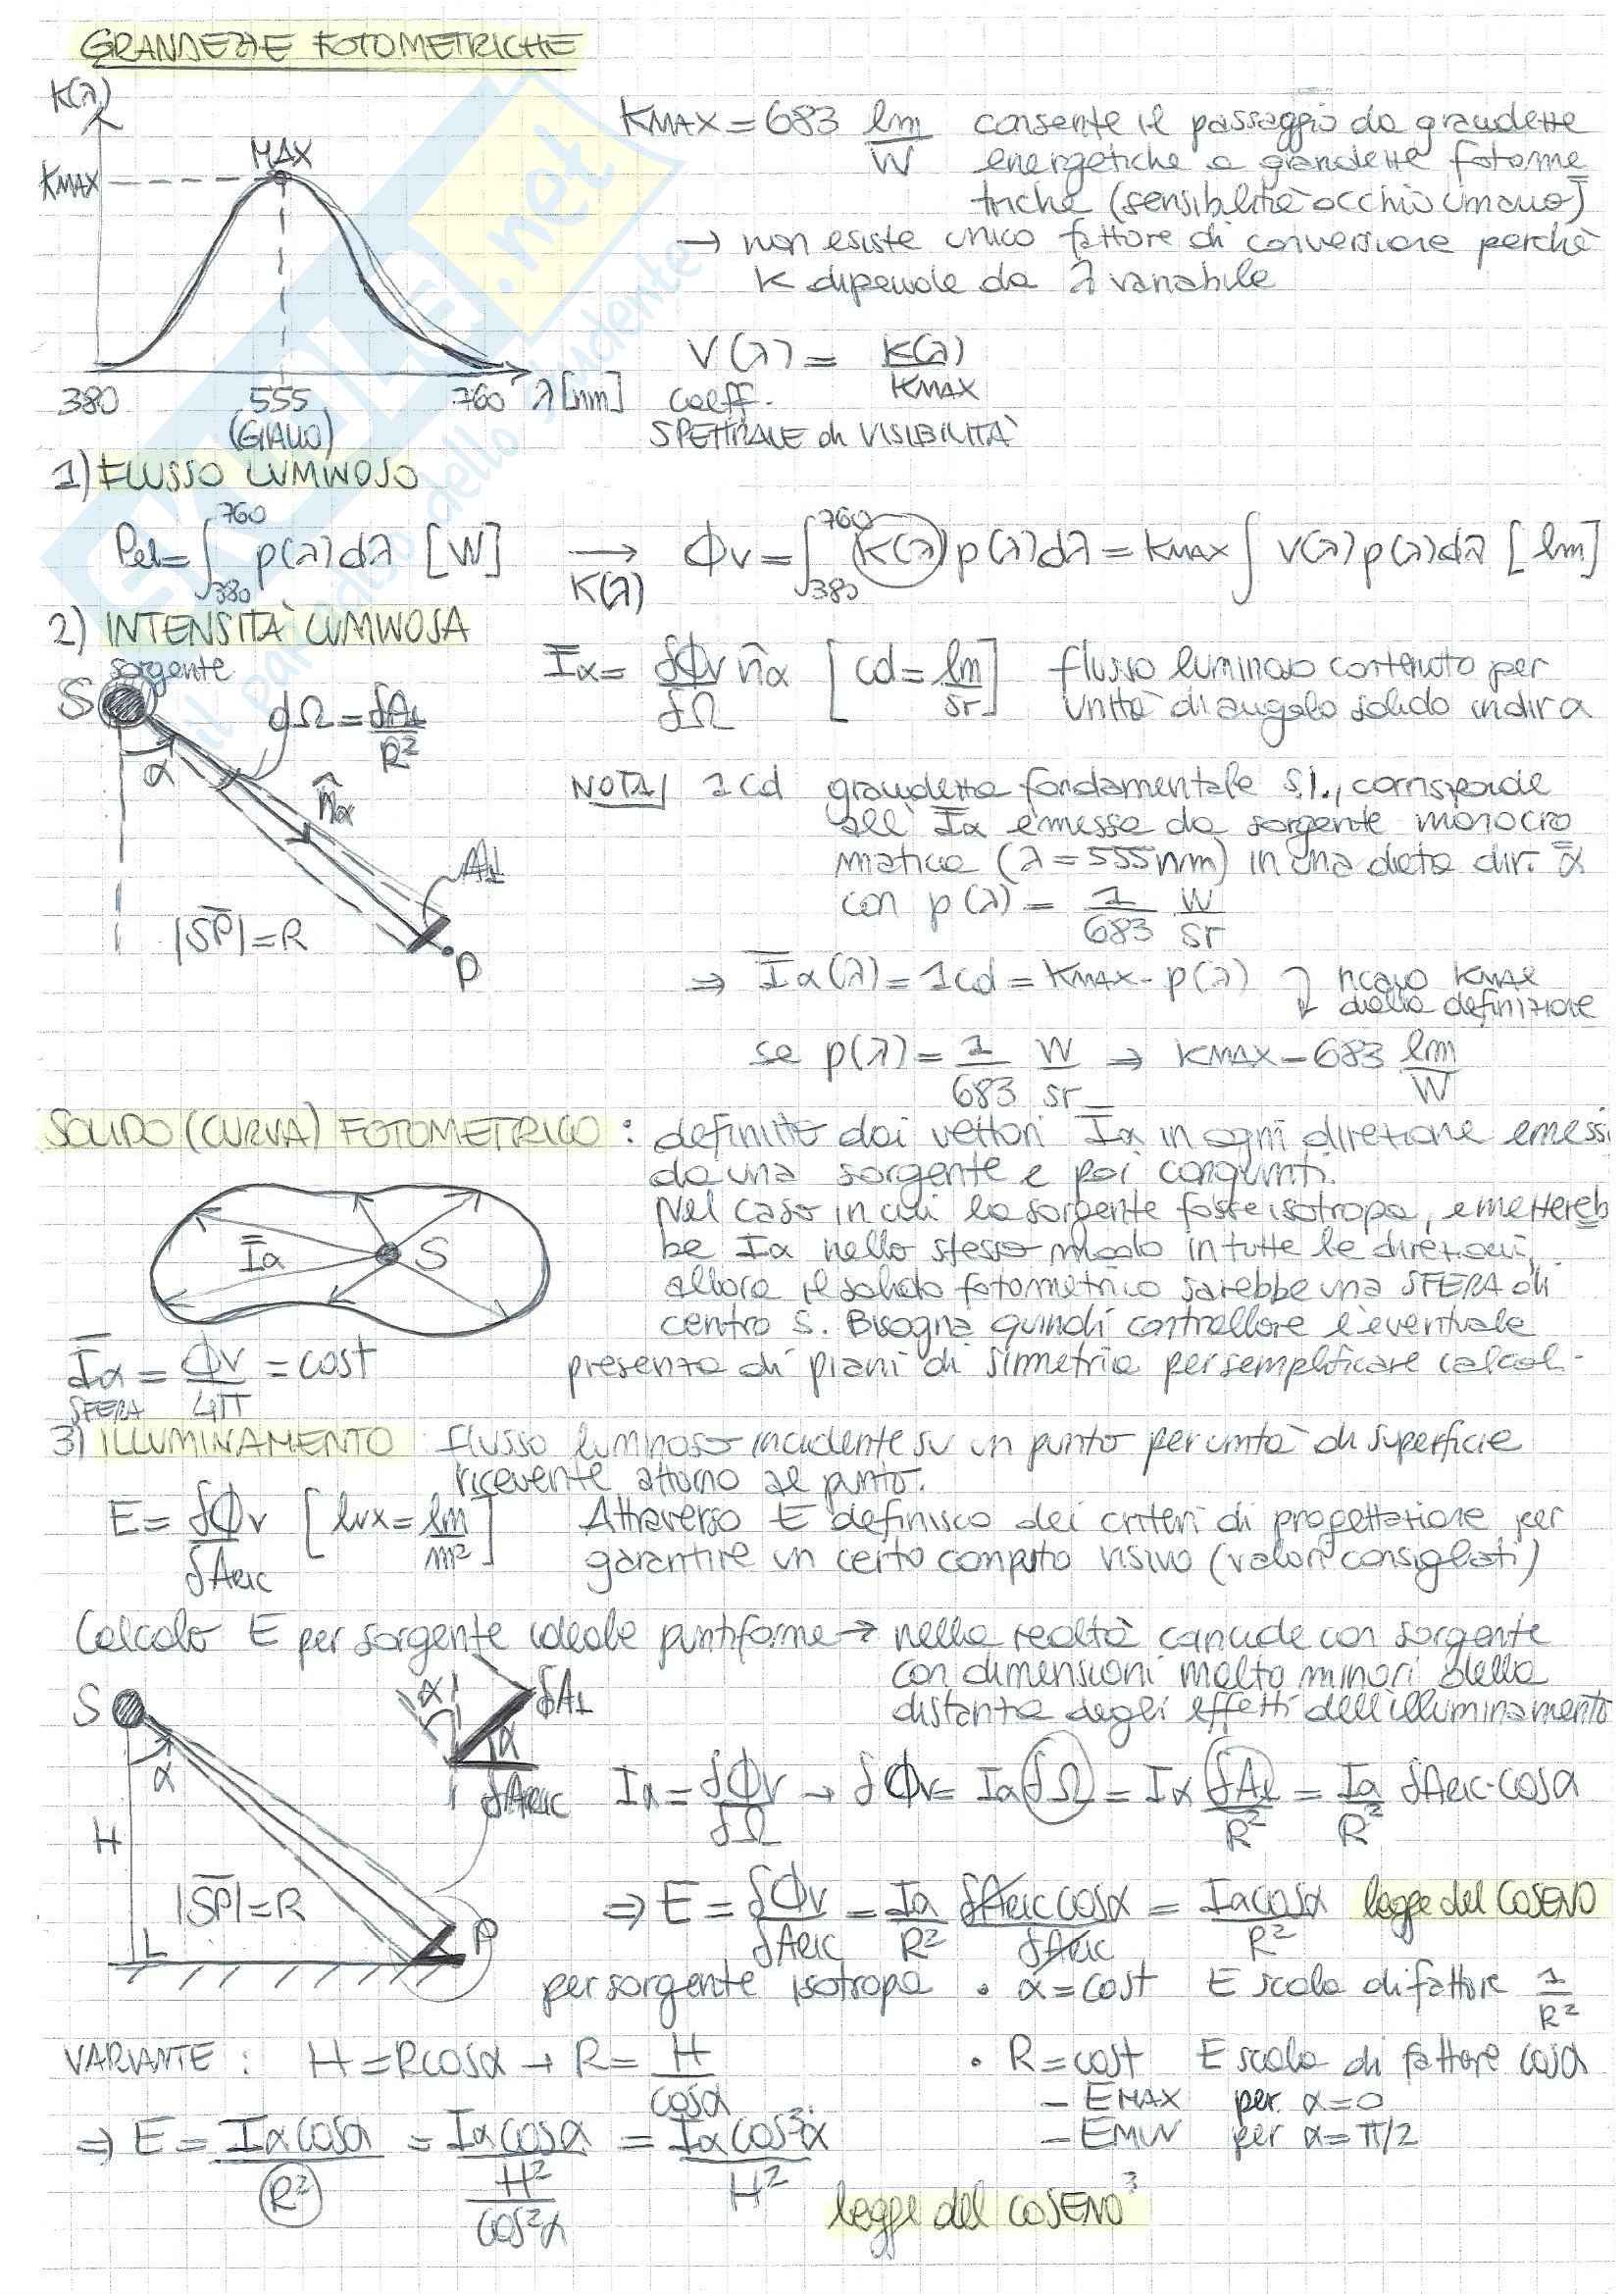 GRANDEZZE FOTOMETRICHE
K(λ)
KMAX
MAX
380 555 760 λ[nm]
(GIALLO)
KMAX = 683 lm/W consente il passaggio da grandezze
energetiche a grandezze fotome
triche (sensibilità occhio umano)
→ non esiste unico fattore di conversione perchè
K dipende da λ variabile
V(λ) = K(λ)/KMAX
coeff.
SPETTRALE di VISIBILITÀ
SKUOLA.net
il paradiso dello studente
1) FLUSSO LUMINOSO
Pel = ∫380^760 p(λ)dλ [W] → K(λ) ϕv = ∫380^760 K(λ) p(λ)dλ = KMAX ∫ V(λ) p(λ)dλ [lm]
2) INTENSITÀ LUMINOSA
sorgente
S
dΩ = δA⊥/R²
α
n̂α
A⊥
|SP| = R
P
Iα = δϕv/δΩ n̂α [cd = lm/sr] flusso luminoso contenuto per
unità di angolo solido in dir α
NOTA/ 1 cd grandezza fondamentale S.I., corrisponde
all' Iα emessa da sorgente monocro
matica (λ = 555nm) in una data dir. α
con p(λ) = 1/683 W/sr
⇒ Iα(λ) = 1cd = KMAX · p(λ) ricavo KMAX
dalla definizione
se p(λ) = 1/683 W/sr ⇒ KMAX = 683 lm/W
SOLIDO (CURVA) FOTOMETRICO : definito dai vettori Iα in ogni direzione emessi
da una sorgente e poi congiunti.
Nel caso in cui la sorgente fosse isotropa, emettereb
be Iα nello stesso modo in tutte le direzioni,
allora il solido fotometrico sarebbe una SFERA di
centro S. Bisogna quindi controllare l'eventuale
presenza di piani di simmetria per semplificare calcol.
Iα
S
Iα = ϕv/4π = cost
SFERA
3) ILLUMINAMENTO flusso luminoso incidente su un punto per unità di superficie
ricevente attorno al punto.
E = δϕv/δAric [lux = lm/m²] Attraverso E definisco dei criteri di progettazione per
garantire un certo compito visivo (valori consigliati)
Calcolo E per sorgente ideale puntiforme → nella realtà coincide con sorgente
con dimensioni molto minori della
distanza degli effetti dell'illuminamento
S
α
H
|SP| = R
P
α
δA⊥
α
δAric
Iα = δϕv/δΩ → δϕv = Iα δΩ = Iα δA⊥/R² = Iα/R² δAric·cosα
⇒ E = δϕv/δAric = Iα/R² δAric cosα/δAric = Iα cosα/R² legge del COSENO
per sorgente isotropa • α = cost E scala di fattore 1/R²
• R = cost E scala di fattore cosα
- EMAX per α = 0
- EMIN per α = π/2
VARIANTE : H = Rcosα → R = H/cosα
⇒ E = Iα cosα/R² = Iα cosα/(H²/cos²α) = Iα cos³α/H²
legge del COSENO³